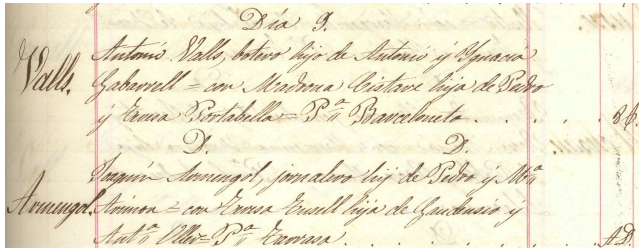 Día 9.
Valls.
Antonio Valls, botero hijo de Antonio y Ignacia
Gabarrell = con Madrona Cistare hija de Pedro
y Teresa Portabella = Pª Barceloneta . . . . . 86.
D. D.
Armengol.
Joaquín Armengol, jornalero hijo de Pedro y Mª
= con Teresa hija de Gaudensio y
Antª Oller = Pª